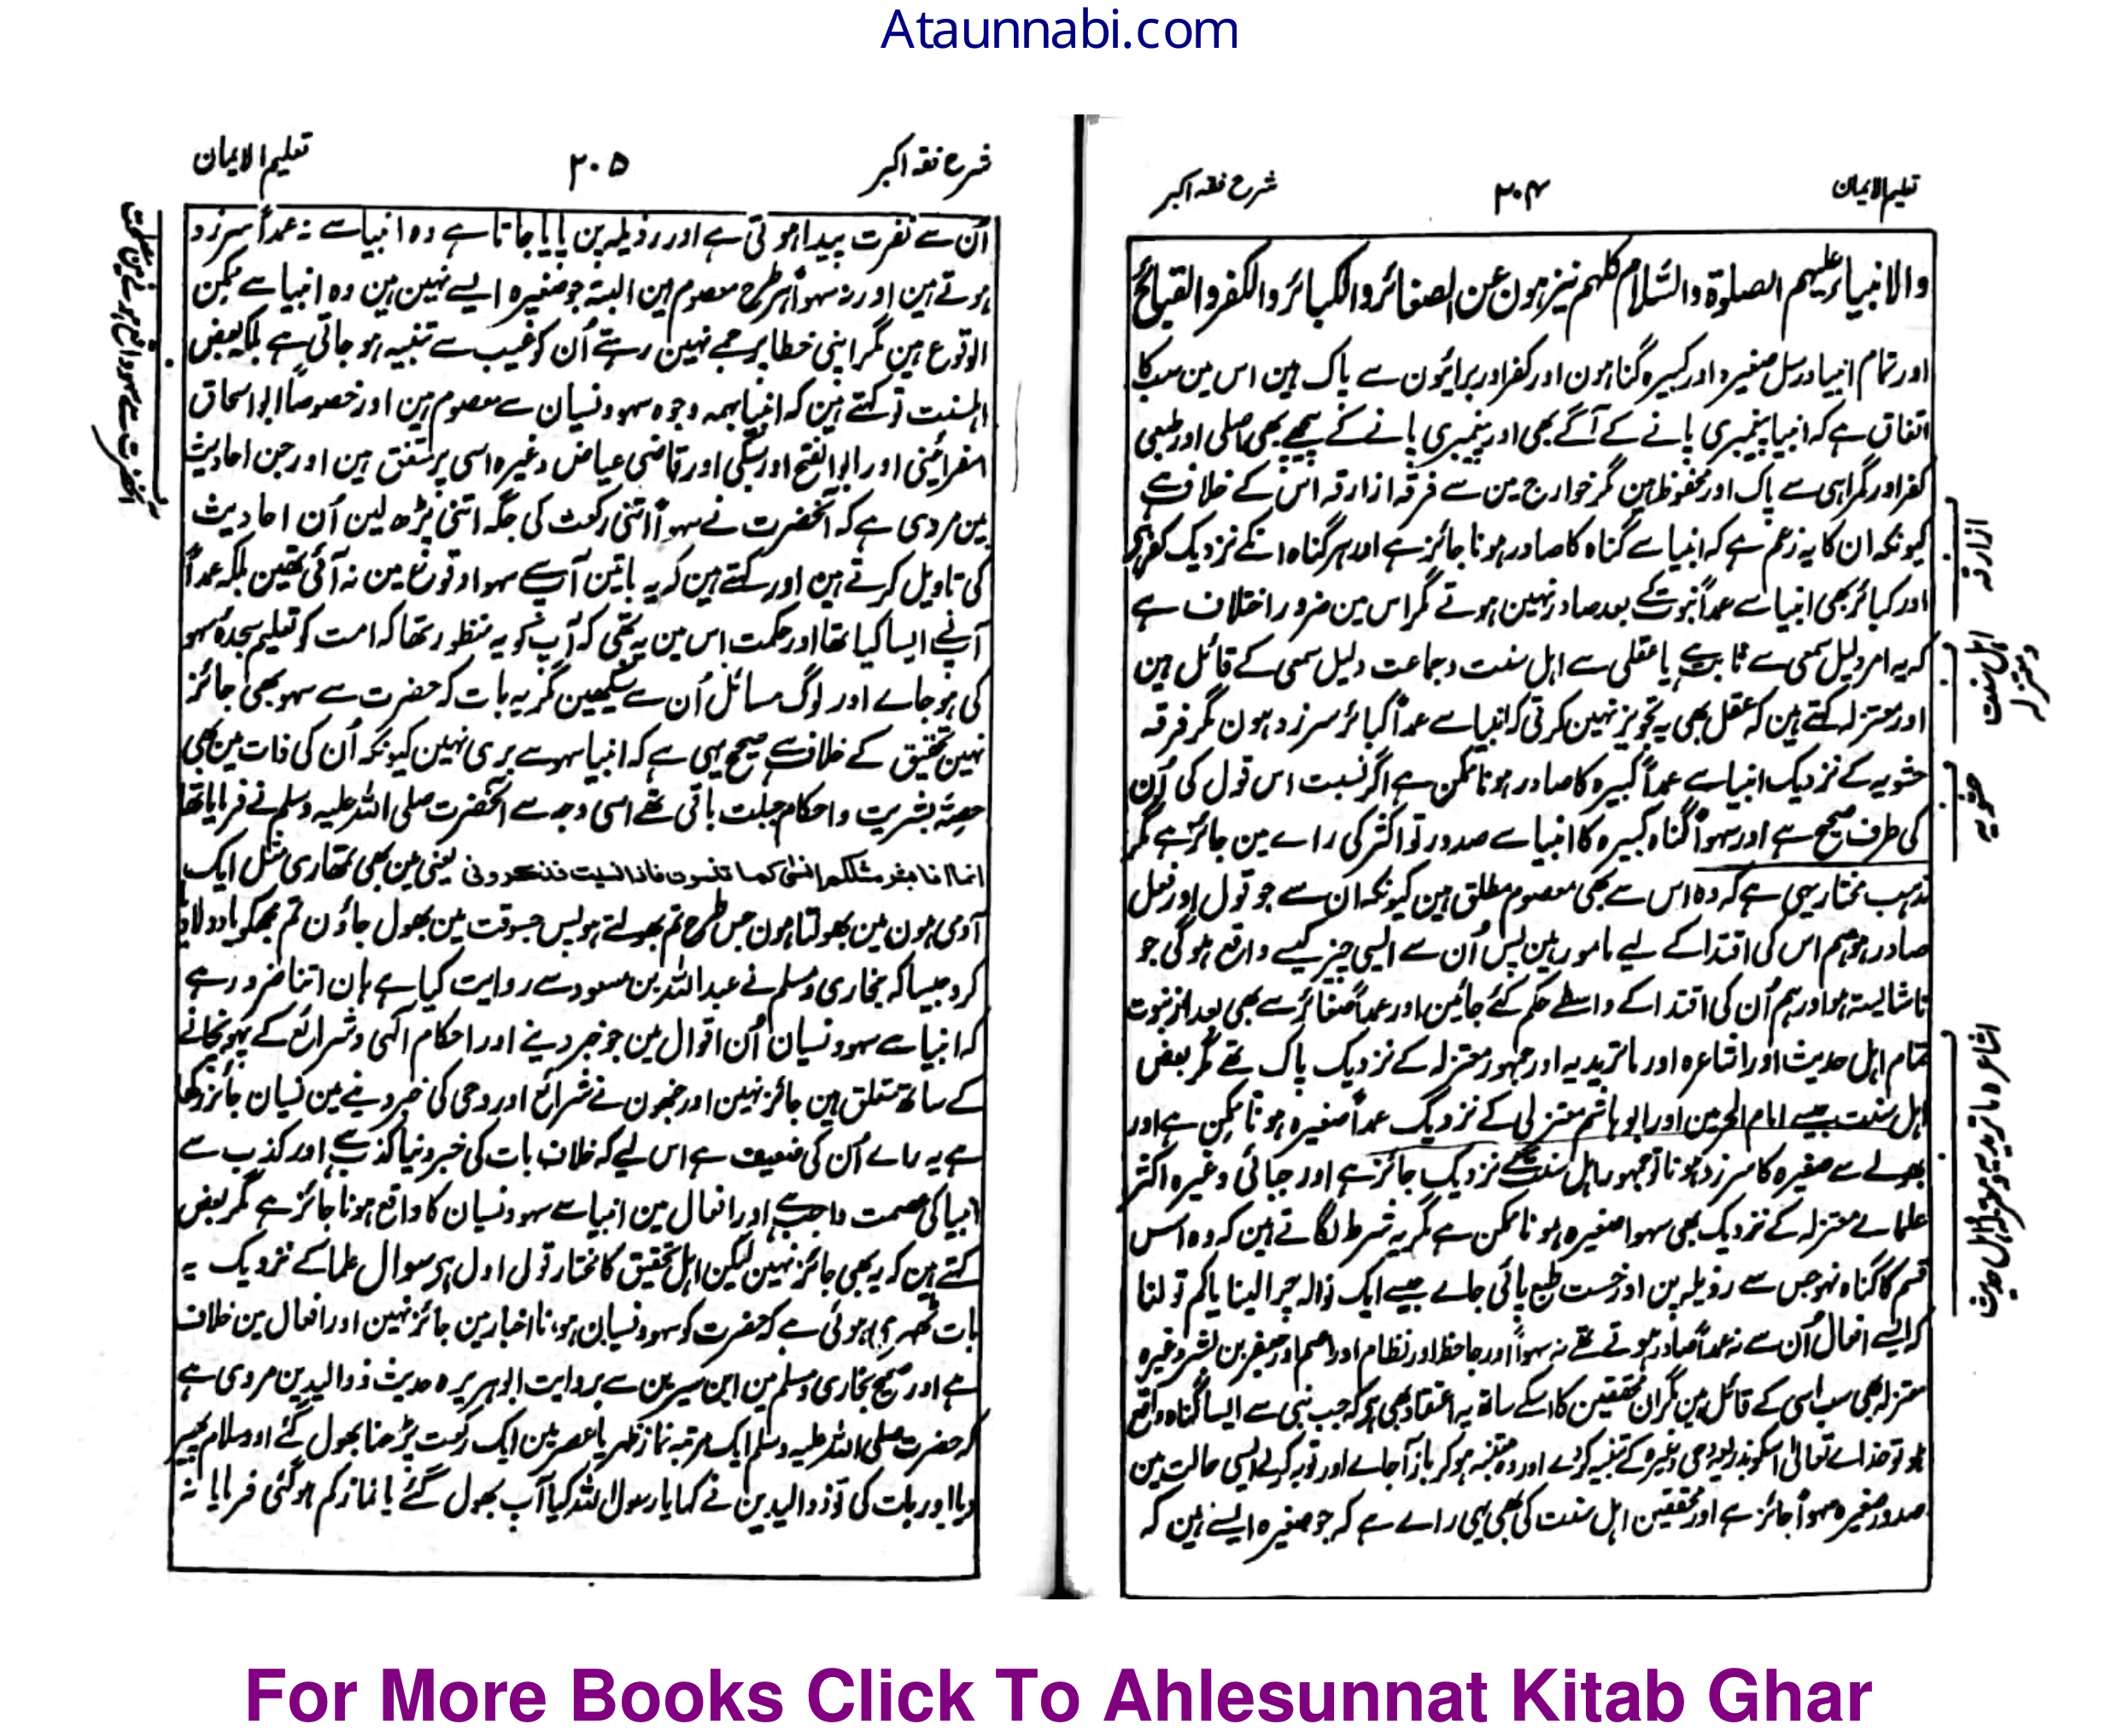 Ataunnabi.com
تعلیم الایمان ۲۰۴ شرح فقہ اکبر
والانبیاء علیہم الصلوۃ والسّلام کلہم منزہون عن الصغائر والکبائر والکفر والقبائح
اور تمام انبیا و رسل صغیرہ اور کبیرہ گناہون اور کفر اور برائیون سے پاک ہین اس مین سب کا
اتفاق ہے کہ انبیا پیغمبری پانے کے آگے بھی اور پیغمبری پانے کے پیچھے بھی اصلی اور طبعی
کفر اور گمراہی سے پاک اور محفوظ ہین مگر خوارج مین سے فرقہ ازارقہ اس کے خلاف ہے
کیونکہ ان کا یہ زعم ہے کہ انبیا سے گناہ کا صادر ہونا جائز ہے اور ہر گناہ انکے نزدیک کفر ہی
اور کبائر بھی انبیا سے عمداً نبوت کے بعد صادر نہین ہوتے مگر اس مین ضرور اختلاف ہے
کہ یہ امر دلیل سمعی سے ثابت ہے یا عقلی سے اہل سنت وجماعت دلیل سمعی کے قائل ہین
اور معتزلہ کہتے ہین کہ عقل بھی یہ تجویز نہین کرتی کہ انبیا سے عمداً کبائر سرزد ہون مگر فرقہ
حشویہ کے نزدیک انبیا سے عمداً کبیرہ کا صادر ہونا ممکن ہے اگر نسبت اس قول کی اُن
کی طرف صحیح ہے اور سہواً گناہ کبیرہ کا انبیا سے صدور تو اکثر کی راے مین جائز ہے مگر
مذہب مختار یہی ہے کہ وہ اس سے بھی معصوم مطلق ہین کیونکہ ان سے جو قول اور فعل
صادر ہو ہم اس کی اقتدا کے لیے مامور ہین پس اُن سے ایسی چیز کیسے واقع ہوگی جو
ناشایستہ ہو اور ہم اُن کی اقتدا کے واسطے حکم کئے جائین اور عمداً صغائر سے بھی بعد از نبوت
تمام اہل حدیث اور اشاعرہ اور ماتریدیہ اور جمہور معتزلہ کے نزدیک پاک تھے مگر بعض
اہل سنت جیسے امام الحرمین اور ابو ہاشم معتزلی کے نزدیک عمداً صغیرہ ہونا ممکن ہے اور
بھولے سے صغیرہ کا سرزد ہونا تو جمہور اہل سنت کے نزدیک جائز ہے اور جبائی وغیرہ اکثر
علماے معتزلہ کے نزدیک بھی سہوا صغیرہ ہونا ممکن ہے مگر یہ شرط لگاتے ہین کہ وہ اس
قسم کا گناہ نہو جس سے رذیلہ پن اور خست طبع پائی جاے جیسے ایک نوالہ چرا لینا یا کم تولنا
کہ ایسے افعال اُن سے نہ عمداً صادر ہوتے تھے نہ سہواً اور جاحظ اور نظام اور اصم اور جعفر بن بشر وغیرہ
معتزلہ بھی سب اسی کے قائل ہین مگر ان محققین کا اسکے ساتھ یہ اعتقاد بھی ہی کہ جب نبی سے ایسا گناہ واقع
ہو تو خداے تعالیٰ اسکو بذریعہ وحی وغیرہ کے تنبیہ کردے اور وہ متنبہ ہوکر باز آجاے اور توبہ کرلے ایسی حالت مین
صدور صغیرہ سہواً جائز ہے اور محققین اہل سنت کی بھی یہی راے ہے کہ جو صغیرہ ایسے ہین کہ
ازارقہ
اہل سنت
و معتزلہ
حشویہ
اشاعرہ ماتریدیہ معتزلہ اہل حدیث
شرح فقہ اکبر ۲۰۵ تعلیم الایمان
اُن سے نفرت پیدا ہوتی ہے اور رذیلہ پن پایا جاتا ہے وہ انبیا سے نہ عمداً سرزد
ہوتے ہین اور نہ سہواً ہر طرح معصوم ہین البتہ جو صغیرہ ایسے نہین ہین وہ انبیا سے ممکن
الوقوع ہین مگر اپنی خطا پر جمے نہین رہتے اُن کو غیب سے تنبیہ ہوجاتی ہے بلکہ بعض
اہلسنت تو کہتے ہین کہ انبیا بہمہ وجوہ سہو و نسیان سے معصوم ہین اور خصوصاً ابو اسحاق
اسفرائینی اور ابو الفتح اور سبکی اور قاضی عیاض وغیرہ اسی پر متفق ہین اور جن احادیث
مین مروی ہے کہ آنحضرت نے سہواً اتنی رکعت کی جگہ اتنی پڑھ لین اُن احادیث
کی تاویل کرتے ہین اور کہتے ہین کہ یہ باتین آپ سے سہوا وقوع مین نہ آئی تھین بلکہ عمداً
آپنے ایسا کیا تھا اور حکمت اس مین یہ تھی کہ آپ کو یہ منظور تھا کہ امت کو تعلیم سجدہ سہو
کی ہوجاے اور لوگ مسائل اُن سے سیکھین مگر یہ بات کہ حضرت سے سہو بھی جائز
نہین تحقیق کے خلاف ہے صحیح یہی ہے کہ انبیا سہو سے بری نہین کیونکہ اُن کی ذات مین بھی
حصۂ بشریت و احکام جبلت باقی تھے اسی وجہ سے آنحضرت صلی اللہ علیہ وسلم نے فرمایا تھا
انما انا بشر مثلکم انسٰی کما تنسون فاذا نسیت فذکرونی یعنی مین بھی تمھاری مثل ایک
آدمی ہون مین بھولتا ہون جس طرح تم بھولتے ہو پس جسوقت مین بھول جاؤن تم مجھکو یاد دلادیا
کرو جیسا کہ بخاری ومسلم نے عبد اللہ بن مسعود سے روایت کیا ہے ہان اتنا ضرور ہے
کہ انبیا سے سہو و نسیان اُن اقوال مین جو خبر دینے اور احکام الٰہی و شرائع کے پہونچانے
کے ساتھ متعلق ہین جائز نہین اور جنھون نے شرائع اور وحی کی خبر دینے مین نسیان جائز رکھا
ہے یہ راے اُن کی ضعیف ہے اس لیے کہ خلاف بات کی خبر دینا کذب ہے اور کذب سے
انبیا کی عصمت واجب ہے اور افعال مین انبیا سے سہو و نسیان کا واقع ہونا جائز ہے مگر بعض
کہتے ہین کہ یہ بھی جائز نہین لیکن اہل تحقیق کا مختار قول اول ہی سوال علما کے نزدیک یہ
بات ٹھہری ہوئی ہے کہ حضرت کو سہو و نسیان ہونا اخبار مین جائز نہین اور افعال مین خلاف
ہے اور صحیح بخاری ومسلم مین ابن سیرین سے بروایت ابو ہریرہ حدیث ذوالیدین مروی ہے
کہ حضرت صلی اللہ علیہ وسلم ایک مرتبہ نماز ظہر یا عصر مین ایک رکعت پڑھنا بھول گئے اور سلام پھیر
دیا اور بات کی تو ذوالیدین نے کہا یا رسول اللہ کیا آپ بھول گئے یا نماز کم ہوگئی فرمایا نہ
آنحضرت سے سہو واقع ہونے مین
For More Books Click To Ahlesunnat Kitab Ghar